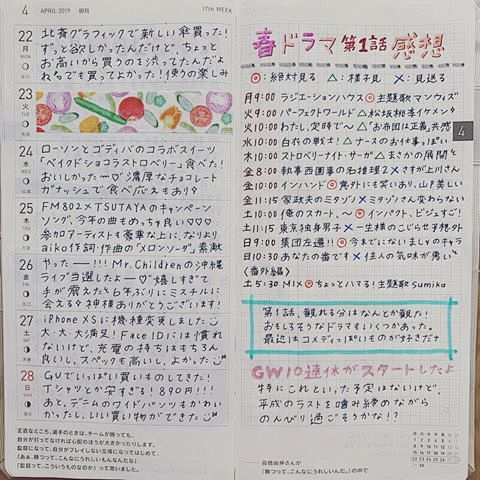 4 APRIL 2019 卯月 17th WEEK
22 月
北斎グラフィックで新しい傘買った!
ずっと欲しかったんだけど、ちょっと
お高いから買うのを渋ってたんだよ
ねでも買ってよかった!使うの楽しみ
23 火
24 水
ローソンとゴディバのコラボスイーツ
「ベイクドショコラストロベリー」食べた!
おいしかったー♡濃厚なチョコレート
ガナッシュで食べ応えもあり
25 木
FM802×TSUTAYAのキャンペーン
ソング、今年の曲もめっちゃ良い♡♡♡
参加アーティストも豪華な上に、なにより
aiko作詞・作曲の「メロンソーダ」素敵
26 金
やったー!!! Mr.Childrenの沖縄
ライブ当選したよー♡嬉しすぎて
手が震えたら6年ぶりにミスチルに
会える!神様ありがとうございます!
27 土
iPhone XSに機種変更しました
大・大・大満足! Face IDには慣れ
ないけど、充電の持ちはもちろん
良いし、スペックも高いし、よかった
28 日
GUでいっぱい買いものしてきた!
Tシャツとか安すぎる!890円!!!
あと、デニムのワイドパンツもかわい
かったし、いい買い物ができた
正直なところ、選手のときは、チームが勝っても、
自分が打ってなければ心配のほうが大きかったりします。
監督になって、自分がプレイしない立場になってはじめて、
「あぁ、勝つって、こんなにうれしいもんなんだな」
「監督って、こういうものなのか」って思いました。
春ドラマ第1話感想
◎:絶対見る △:様子見 ×:見送る
月9:00 ラジエーションハウス◎主題歌マンウィズ
火9:00 パーフェクトワールド△松坂桃李イケメン
火10:00 わたし、定時で〜△"お布団は正義"共感
水10:00 白衣の戦士!△ナースのお仕事っぽい
木10:00 ストロベリーナイト・サーガ△まさかの展開
金8:00 執事西園寺の名推理2×さすが上川さん
金10:00 インハンド◎意外にも笑いあり、山P美しい
金11:15 家政夫のミタゾノ×ミタゾノさん変わらない
土10:00 俺のスカート、〜◎インパクト、ビジュすご!
土11:15 東京独身男子×一生様のこじらせ予想外
日9:00 集団左遷!!◎今までにないましゃのキャラ
日10:30 あなたの番です×住人の気味が悪い
〈番外編〉
土5:30 MIX◎ちょっとハマる!主題歌sumika
第1話、観れる分はなんとか観た!
おもしろそうなドラマもいくつかあった。
最近はコメディっぽいものが好きださ
GW10連休がスタートしたよ
特にこれといった予定はないけど、
平成のラストを噛み締めながら
のんびり過ごそうかな!?
4
高橋由伸さんが
『勝つって、こんなにうれしいんだ。』の中で